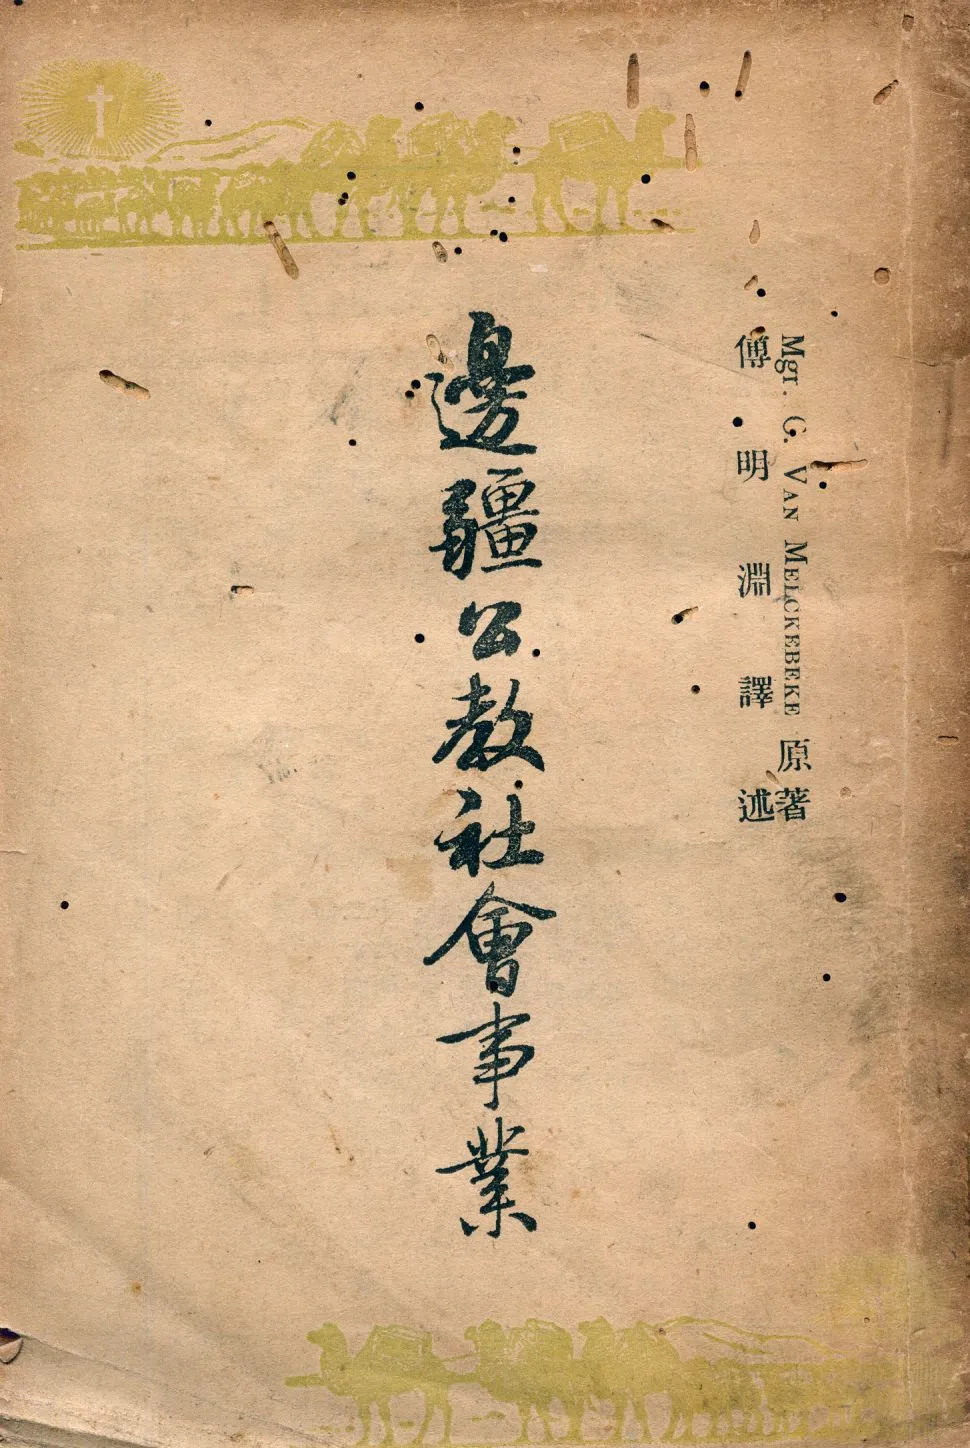 Mgr. G. VAN MELCKEBEKE 原著
傅明淵譯述
邊疆公教社會事業